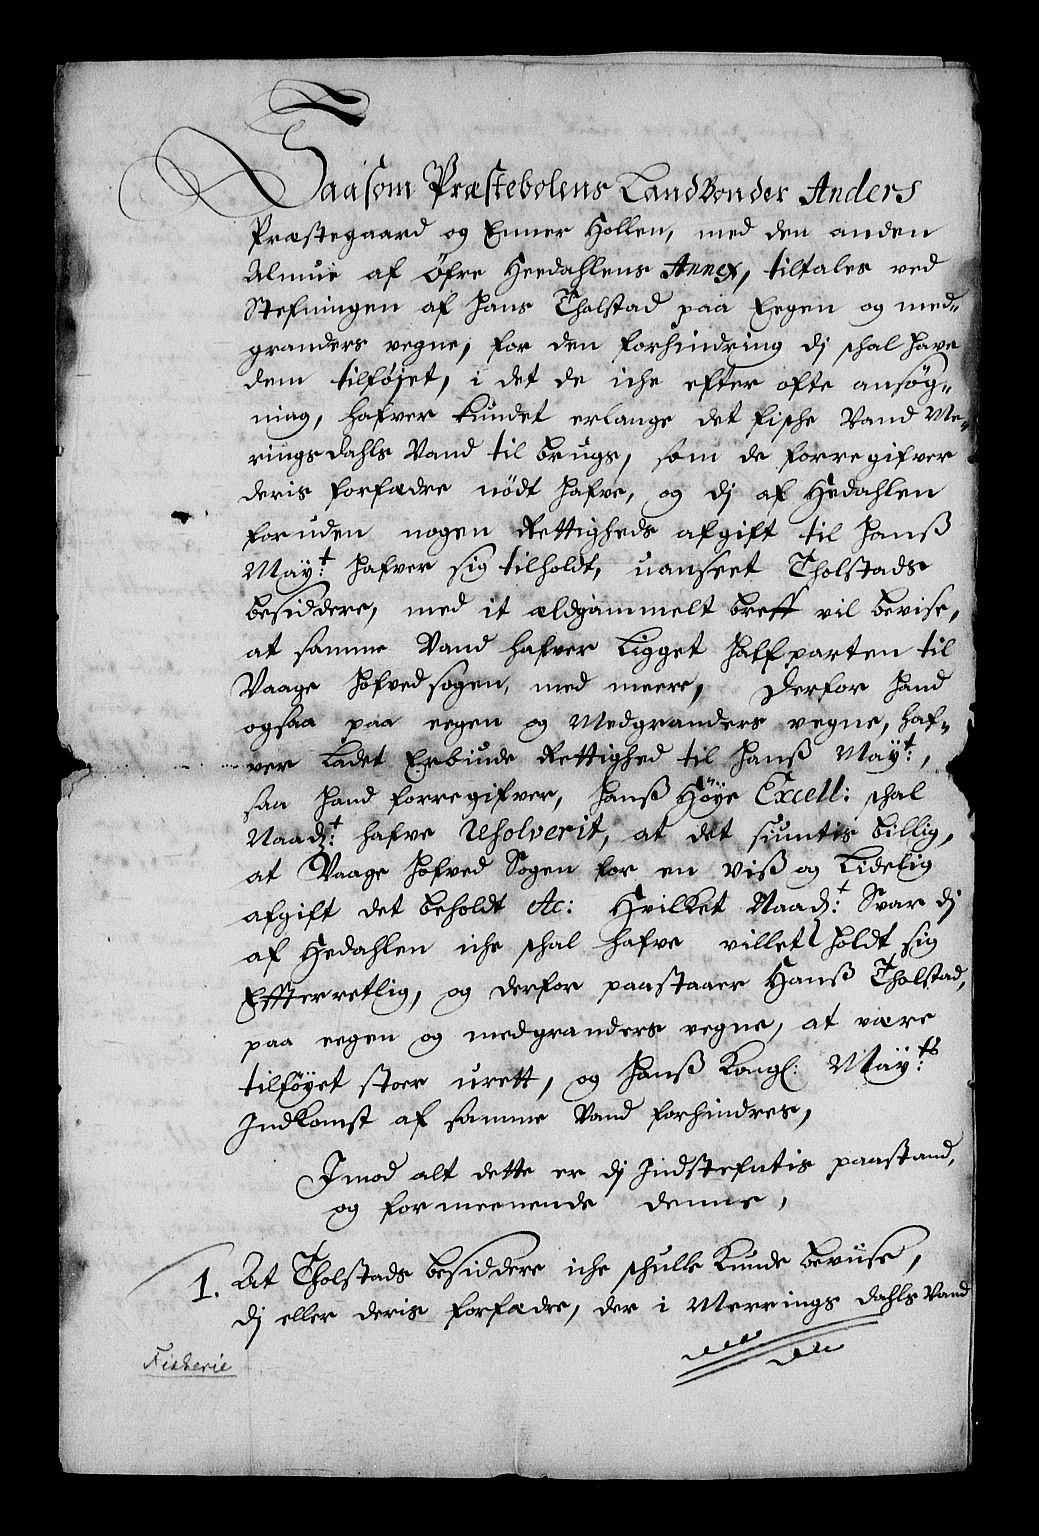 Saasom Præstebolens Landbønder Anders
Præstegaard og Enner Hollen, med den anden
Almue af Öfre Heedahlens Annex, tiltales ved
Stefningen af Hans Tholstad paa Eegen og med-
granders vegne, for den forhindring dj schal have
dem tilføjet, i det de iche efter ofte ansøg-
ning, hafver kundet erlange det fische Vand Me-
rings dahls Vand til brugs, som de forregifver
deris forfædre nödt hafve, og dj af Hedahlen
foruden nogen Rettigheds afgift til Hanß
Maÿt: hafver sig tilholdt, uanseet Tholstads
besiddere, med it ældgammelt breff vil bevise,
at samme Vand hafver Ligget halfparten til
Vaage Hofvedsogen, med meere, Derfor Hand
ogsaa paa eegen og Medgranders vegne, haf-
ver Ladet Erbiude Rettighed til Hanß Maÿt:,
saa Hand forregifver, Hanß Höÿe Excell: schal
Naadt: hafve Resolverit, at det siuntis billig,
at Vaage Hofved Sogen for en viß og Lidelig
afgift det beholdt etc: Hvilket Naadt: Svar dj
af Hedahlen iche schal hafve villet holdt sig
Effterretlig, og derfor paastaaer Hanß Tholstad,
paa eegen og medgranders vegne, at være
tilföÿet stoer urett, og Hanß Kongl: Maÿts:
Indkomst af samme Vand forhindres,
Imod alt dette er dj Indstefntis paastand,
og formeenende denne,
1. At Tholstads besiddere iche schulle kunde beviise,
dj eller deris forfædre, der i Merrings dahls Vand
Fiskerie